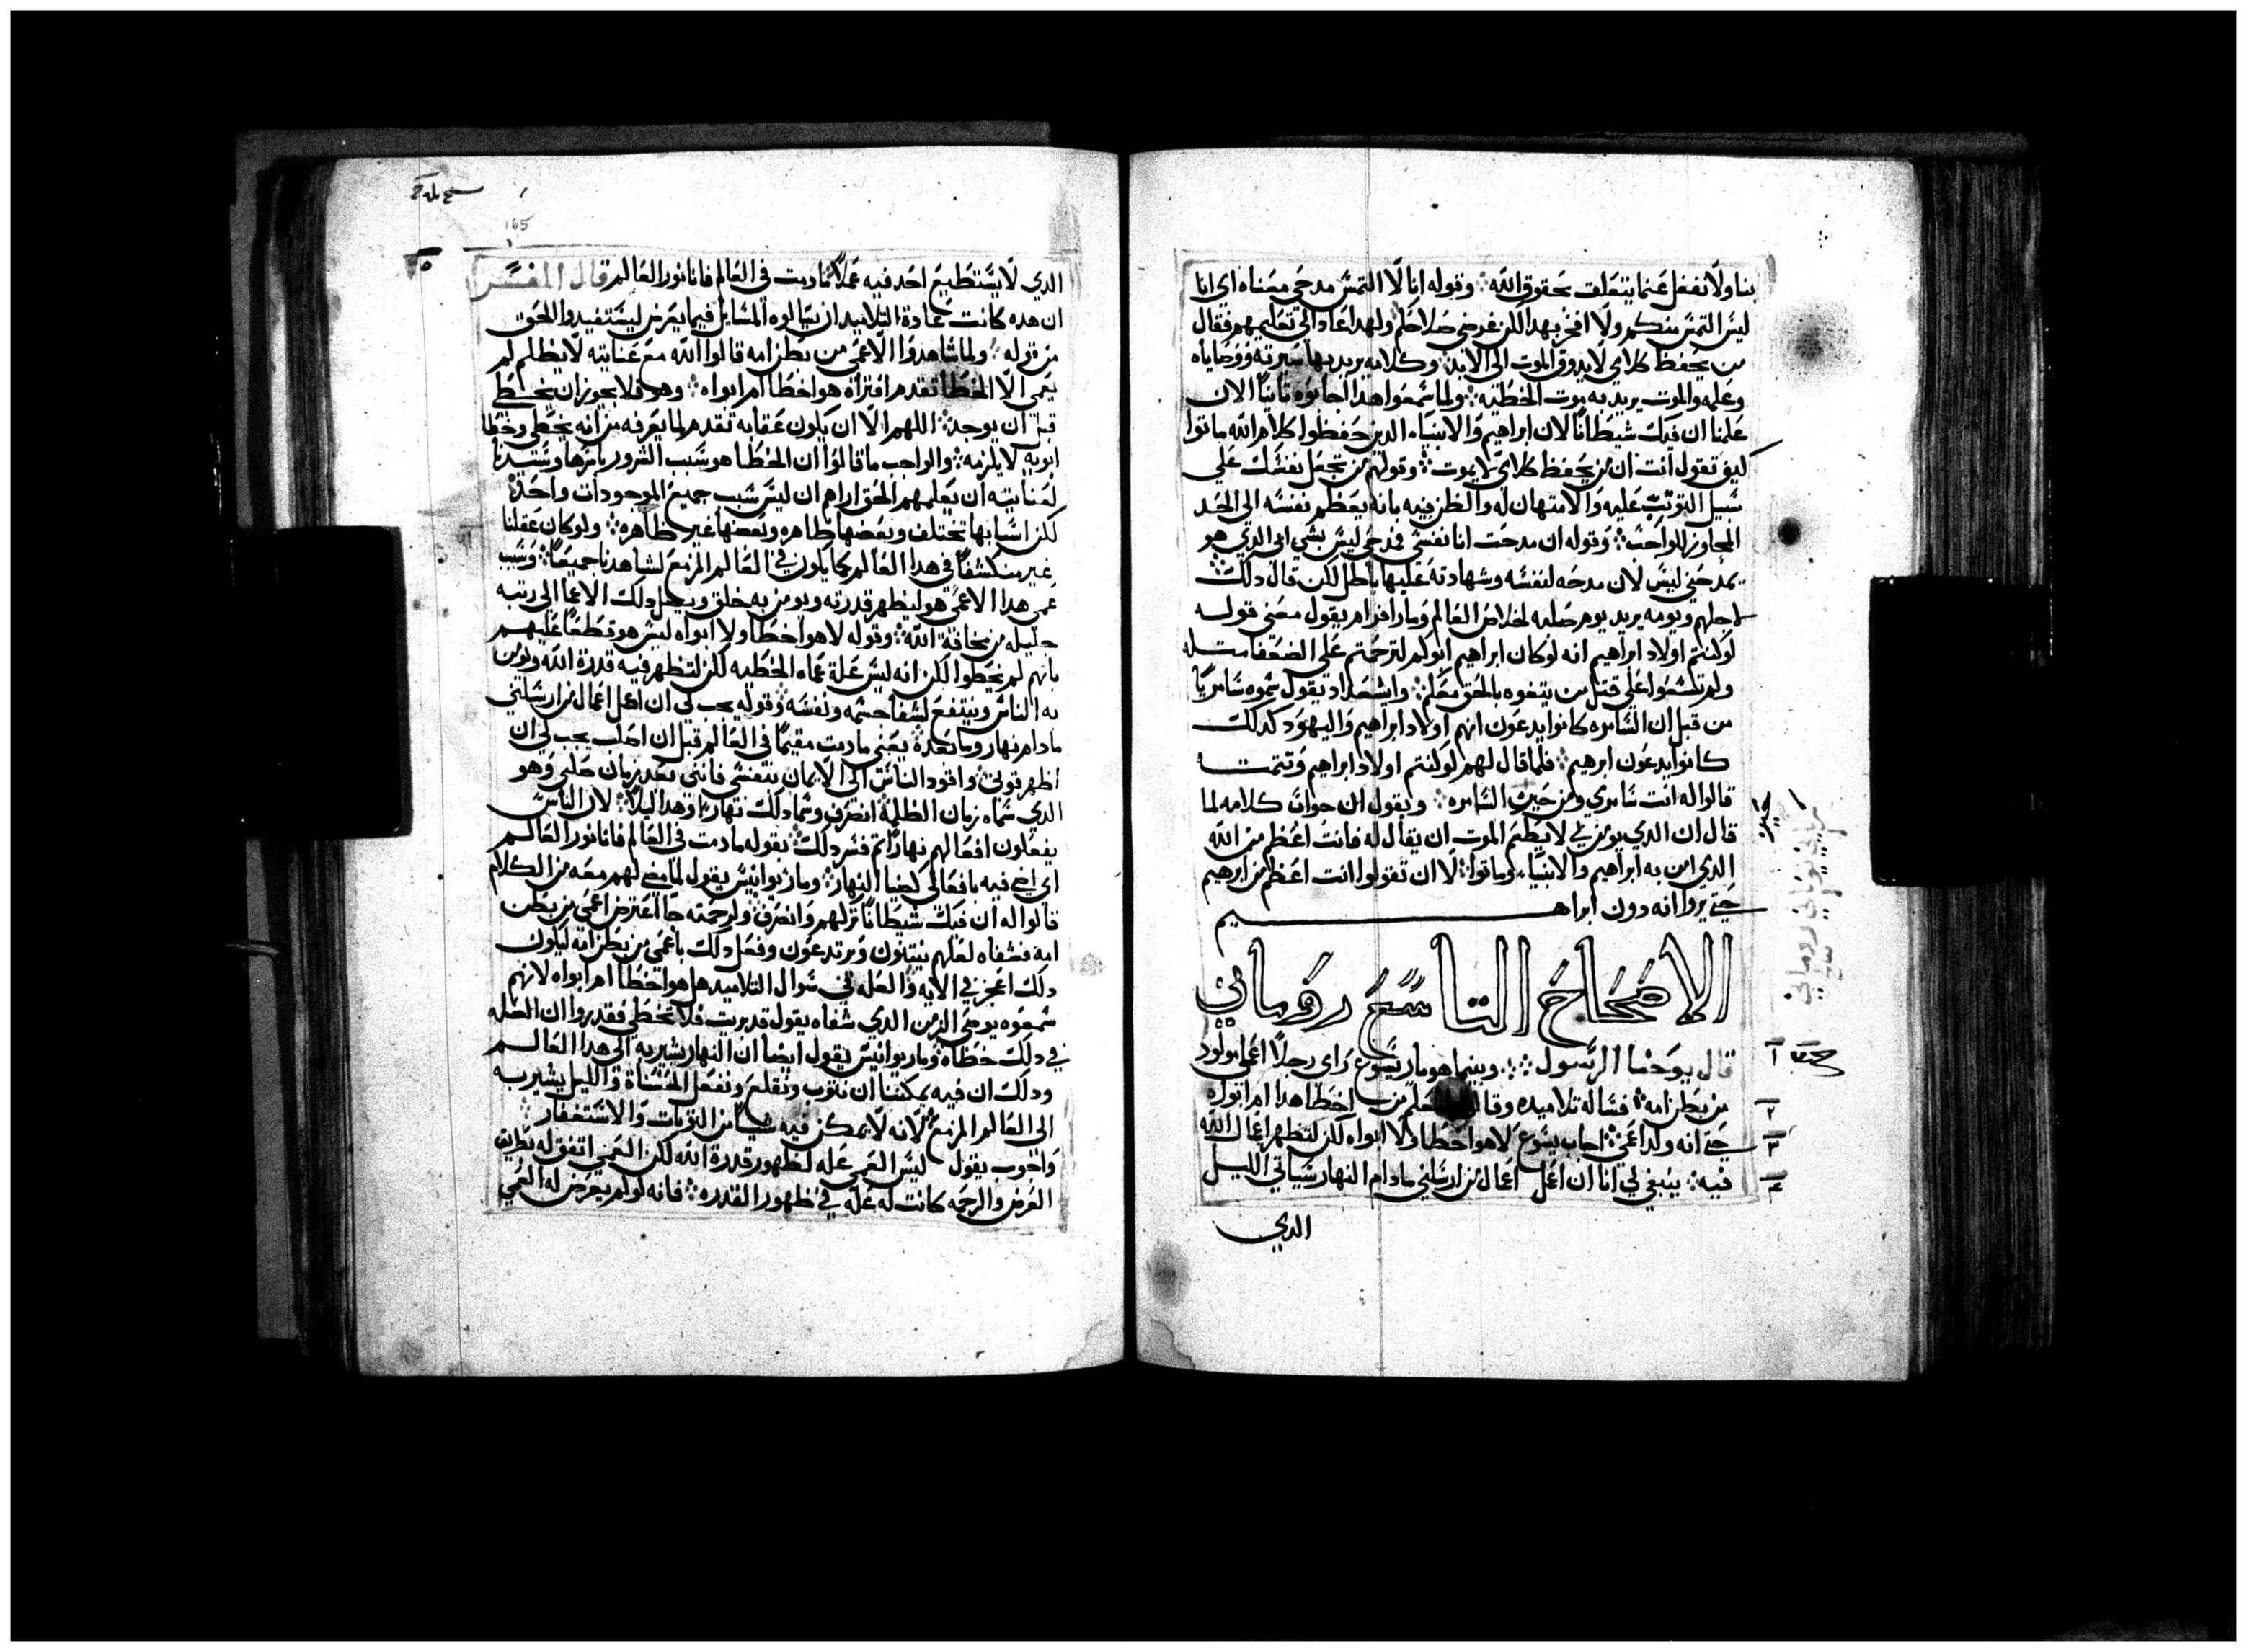 بنا ولا نغفل عنما يتعلق بحقوق الله وقوله انا لا التمس مدحي معناه اي انا
ليس التمس منكم ولا افخر بهدا لكن غرضي صلاحكم ولهدا عاد الى تعليمهم فقال
من يحفظ كلامي لا يدوق الموت الى الابد وكلامه يريد بها سيرته ووصاياه
وعلمه والموت يريد به موت الخطيه ولما سمعوا هدا اجابوه ثانيا الان
علمنا ان فيك شيطانا لان ابراهيم والانبياء الدين حفظوا كلام الله ماتوا
كيف تقول انت ان من يحفظ كلامي لا يموت وقولهم من تجعل نفسك على
سبيل التوثب عليه والامتهان له والظن فيه بانه يعظم نفسه الى الحد
المجاوز للواجب وقوله ان مدحت انا نفسي فمدحي ليس بشي ابي الدي هو
يمدحني ليس لان مدحه لنفسه وشهادته عليها باطل لكن قال دلك
لاجلهم ويومه يريد يوم صلبه لخلاص العالم ومار افرام يقول معنى قوله
لو كنتم اولاد ابراهيم انه لو كان ابراهيم ابوكم لترحمتم على الضعفا مثله
ولم تلتمسوا على قتل من يتفوه بالحق بعلم وايشعداد يقول سموه سامريا
من قبل ان السامره كانوا يدعون انهم اولاد ابراهيم واليهود كدلك
كانوا يدعون ابرهيم فلما قال لهم لو كنتم اولاد ابراهيم وتتمت
قالوا له انت سامري ومن حيث السامره ويقول ان جواب كلامه لما
قال ان الدي يومن بي لا يطعم الموت ان يقال له فانت اعظم من الله
الدي امن به ابراهيم والانبياء وماتوا لا ان تقولوا انت اعظم من ابرهيم
حتى يروا انه دون ابراهيم
الاصحاح التاسع روماني
قال يوحنا الرسول وبينما هو مار يسوع راى رجلا اعمى مولود
من بطن امه فساله تلاميده وقالوا يا معلم من اخطا هدا ام ابواه
حتى انه ولد اعمى اجاب يسوع لا هو اخطا ولا ابواه لكن لتظهر اعمال الله
فيه ينبغي لي انا ان اعمل اعمال من ارسلني مادام النهار سياتي الليل
الدي
١
٢
٣
٤
165
٥
الدي لا يستطيع احد فيه عملا مادمت في العالم فانا نور العالم قال المفسر
ان هده كانت عادة التلاميد ان يسالوه المسايل فيما يعرض ليستفيدوا الحق
من قوله ولما شاهدوا الاعمى من بطن امه قالوا الله مع عنايته لا يظلم لم
يعمى الا لخطا تقدم افتراه هو اخطا ام ابواه وهو فلا يجوز ان يخطي
قبل ان يوجد اللهم الا ان يكون عقابه تقدم لما يعرفه من انه يخطي وخطا
ابويه لا يلزمه والواجب ما قالوا ان الخطا هو سبب الشرور باسرها وسيدنا
لعنايته ان يعلمهم الحق اراهم ان ليس سبب جميع الموجودات واحدة
لكن اسبابها تختلف وبعضها ظاهره وبعضها غير ظاهره ولو كان عقلنا
غير منكشفا في هدا العالم كما يكون في العالم المزمع لشاهدنا جميعا وسبب
عمى هدا الاعمى هو ليظهر قدرته ويومن به خلق ويصل دلك الاعما الى رتبه
جليله من مخافة الله وقوله لا هو اخطا ولا ابواه ليس هو قطعا عليهم
بانهم لم يخطوا لكن انه ليس علة عماه الخطيه لكن لتظهر فيه قدرة الله ويومن
به الناس وينتفع لشفا جسمه ونفسه وقوله يجب لي ان اعمل اعمال من ارسلني
مادام نهار وما بعده يعني مادمت مقيما في العالم قبل ان اصلب يجب لي ان
اظهر قوتي واقود الناس الى الايمان بنفسي فانني بعد زمان صلبي وهو
الدي سماه زمان الظلمة انصرف وسما دلك نهارا وهدا ليلا لان الناس
يفعلون افعالهم نهارا ثم فسر دلك بقوله مادمت في العالم فانا نور العالم
اي اضي فيه بافعالى كضيا النهار ومار يوانيس يقول لما مضى لهم معه من الكلام
قالوا له ان فيك شيطانا تركهم وانصرف ولرحمته جا اعترض اعمى من بطن
امه فشفاه لعلهم ينتبهون ويرتدعون وفعل دلك باعمى من بطن امه ليكون
دلك اعجز في الايه والعله في سوال التلاميد هل هو اخطا ام ابواه لانهم
سمعوه يوصى الزمن الدي شفاه يقول قد بريت فلا تخطي فقدروا ان العله
في دلك خطاه ومار يوانيس يقول ايضا ان النهار يشير به الى هدا العالم
ودلك ان فيه يمكننا ان نتوب ونقلع ونفعل الحسناة والليل يشير به
الى العالم المزمع لانه لا يمكن فيه شيا من التوبات والاستغفار
واخرون يقول ليس العمى علة لظهور قدرة الله لكن العمى اتفق له بطريق
العرض والرحمه كانت له علة في ظهور القدره فانه لو لم يعرض له العمى